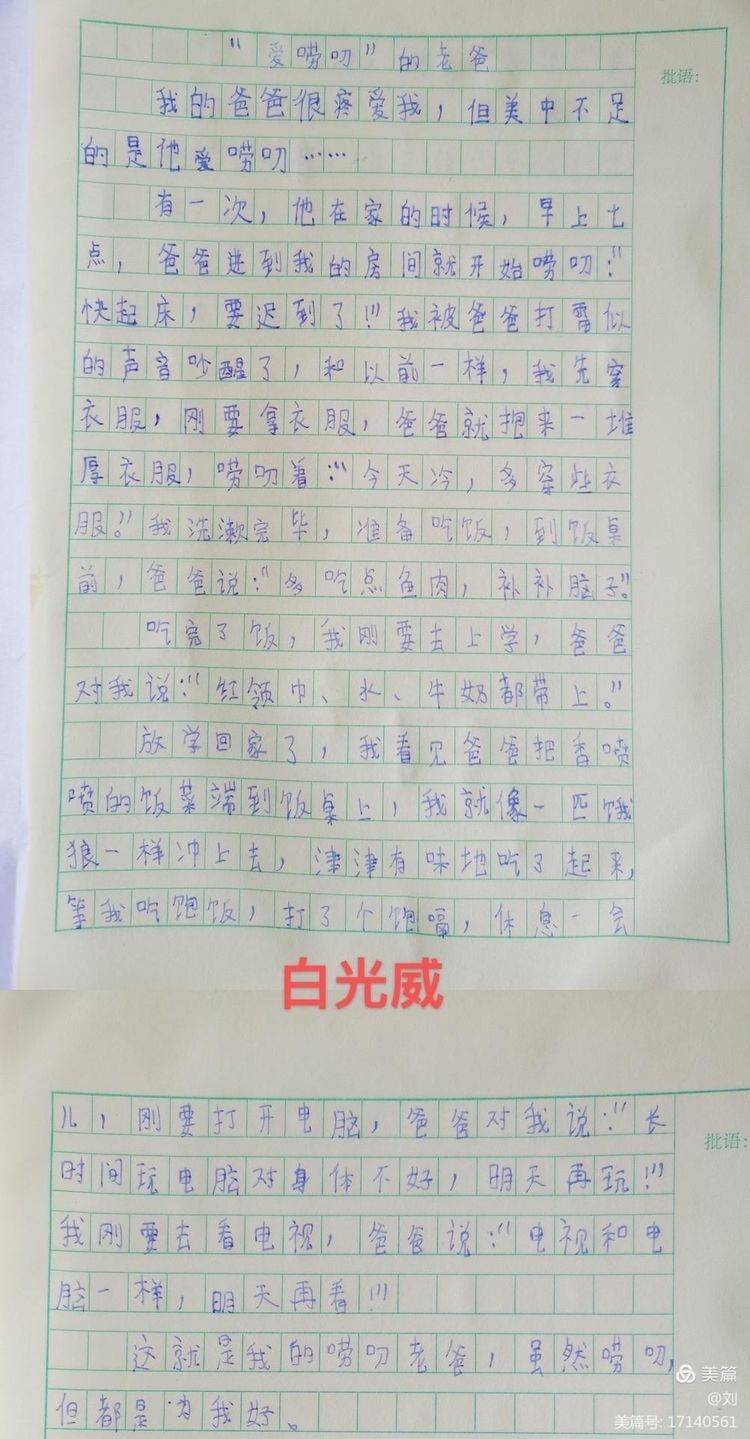 “爱唠叨”的老爸
批语:
我的爸爸很疼爱我，但美中不足
的是他爱唠叨……
有一次，他在家的时候，早上七
点，爸爸进到我的房间就开始唠叨：“
快起床，要迟到了！”我被爸爸打雷似
的声音吵醒了，和以前一样，我先穿
衣服，刚要拿衣服，爸爸就抱来一堆
厚衣服，唠叨着：“今天冷，多穿些衣
服。”我洗漱完毕，准备吃饭，到饭桌
前，爸爸说：“多吃点鱼肉，补补脑子。”
吃完了饭，我刚要去上学，爸爸
对我说：“红领巾、水、牛奶都带上。”
放学回家了，我看见爸爸把香喷
喷的饭菜端到饭桌上，我就像一匹饿
狼一样冲上去，津津有味地吃了起来，
等我吃饱饭，打了个饱嗝，休息一会
白光威
儿，刚要打开电脑，爸爸对我说：“长
批语:
时间玩电脑对身体不好，明天再玩！”
我刚要去看电视，爸爸说：“电视和电
脑一样，明天再看！”
这就是我的唠叨老爸，虽然唠叨，
但都是为我好。
美篇
@刘
美篇号: 17140561